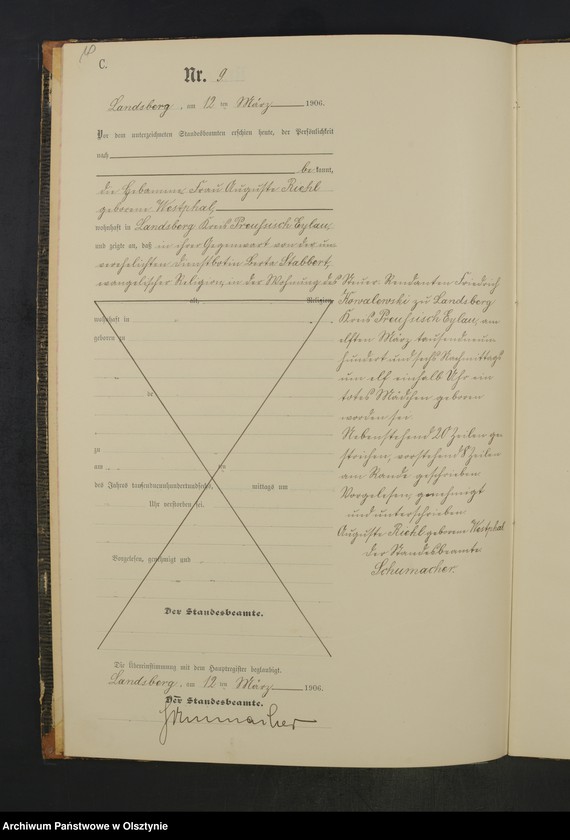 C.
Nr. 9
Landsberg, am 12ten März 1906.
Vor dem unterzeichneten Standesbeamten erschien heute, der Persönlichkeit
nach
be kannt,
die Hebamme, Frau Auguste Riehl
geborene Westphal,
wohnhaft in Landsberg Kreis Preußisch Eylau,
und zeigte an, daß in ihrer Gegenwart von der un-
verehelichten Dienstbotin Berta Stabbert,
evangelischer Religion, in der Wohnung des Steuer-Rendanten Friedrich
Kowalewski zu Landsberg
Kreis Preußisch Eylau, am
elften März tausendneun
hundert und sechs Nachmittags
um elf einhalb Uhr ein
totes Mädchen geboren
worden sei
Nebenstehend 20 Zeilen ge
strichen, vorstehend 8 Zeilen
am Rande geschrieben
Vorgelesen, genehmigt
und unterschrieben
Auguste Riehl geborene Westphal
Der Standesbeamte
Schumacher.
alt, Religion,
wohnhaft in
geboren zu
zu
am ten
des Jahres tausendneunhundertundsechs mittags um
Uhr verstorben sei.
Vorgelesen, genehmigt und
Der Standesbeamte.
Die Übereinstimmung mit dem Hauptregister beglaubigt.
Landsberg, am 12ten März 1906.
Der Standesbeamte.
Schumacher
Archiwum Państwowe w Olsztynie